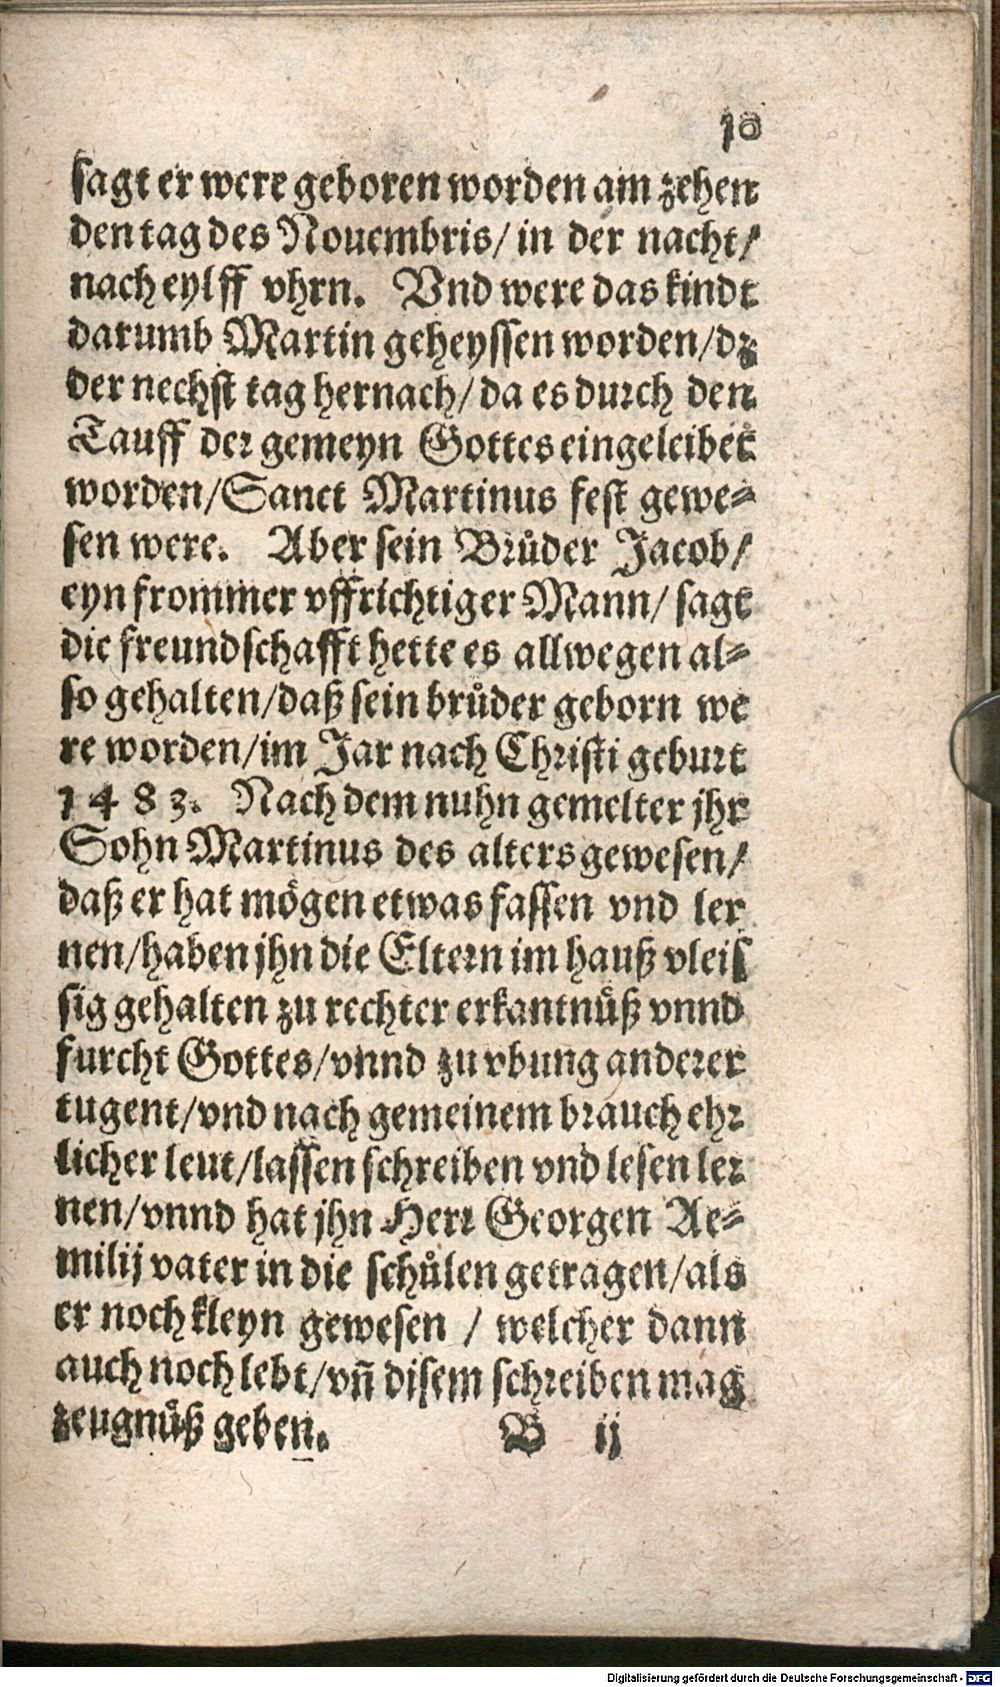 10
sagt er were geboren worden am zehen
den tag des Nouembris/ in der nacht/
nach eylff vhrn. Vnd were das kindt
darumb Martin geheyssen worden/dz
der nechst tag hernach/ da es durch den
Tauff der gemeyn Gottes eingeleibet
worden/Sanct Martinus fest gewe-
sen were. Aber sein Brůder Jacob/
eyn frommer vffrichtiger Mann/ sagt
die freundschafft hette es allwegen al-
so gehalten/daß sein brůder geborn we
re worden/im Jar nach Christi geburt
1483. Nach dem nuhn gemelter jhr
Sohn Martinus des alters gewesen/
daß er hat mögen etwas fassen vnd ler
nen/haben jhn die Eltern im hauß vleis
sig gehalten zu rechter erkantnüß vnnd
furcht Gottes/vnnd zu vbung anderer
tugent/vnd nach gemeinem brauch ehr
licher leut/lassen schreiben vnd lesen ler
nen/vnnd hat jhn Herr Georgen Ae-
milij vater in die schůlen getragen/als
er noch kleyn gewesen / welcher dann
auch noch lebt/vñ disem schreiben mag
zeugnüß geben. B ij
Digitalisierung gefördert durch die Deutsche Forschungsgemeinschaft - DFG